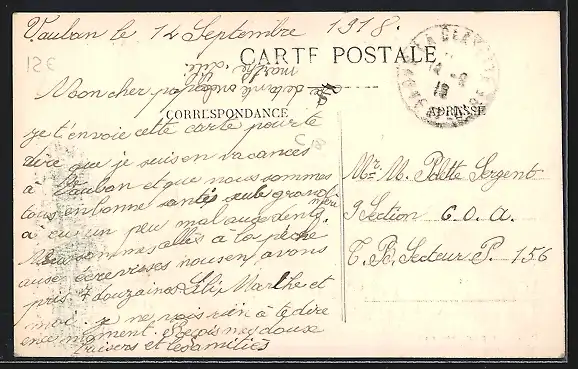 Vauban le 12 Septembre 1918.
CARTE POSTALE
Mon cher papa
CORRESPONDANCE
ADRESSE
je t'envoie cette carte pour te
dire que je suis en vacances
à Vauban et que nous sommes
tous en bonne santés seule grand mère
a eu un peu mal aux dents.
Nous sommes allés à la pêche
ause écrevisses nous en avons
pris 7 douzaines Lili Marthe et
moi. je ne vois rien à te dire
en ce moment. Reçois mes doux
baisers et les amitiés
de
Marthe
Lili.
Mr. M. Sergent
9 Section C. O. A.
T. B. Secteur P. 156